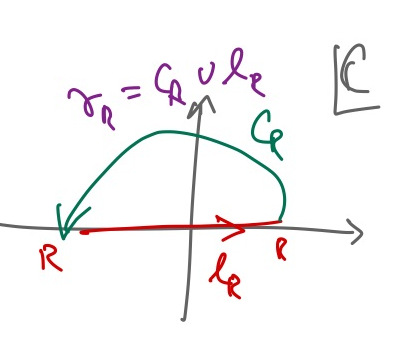 γ_R = C_R ∪ l_R
ℂ
C_R
R
R
l_R